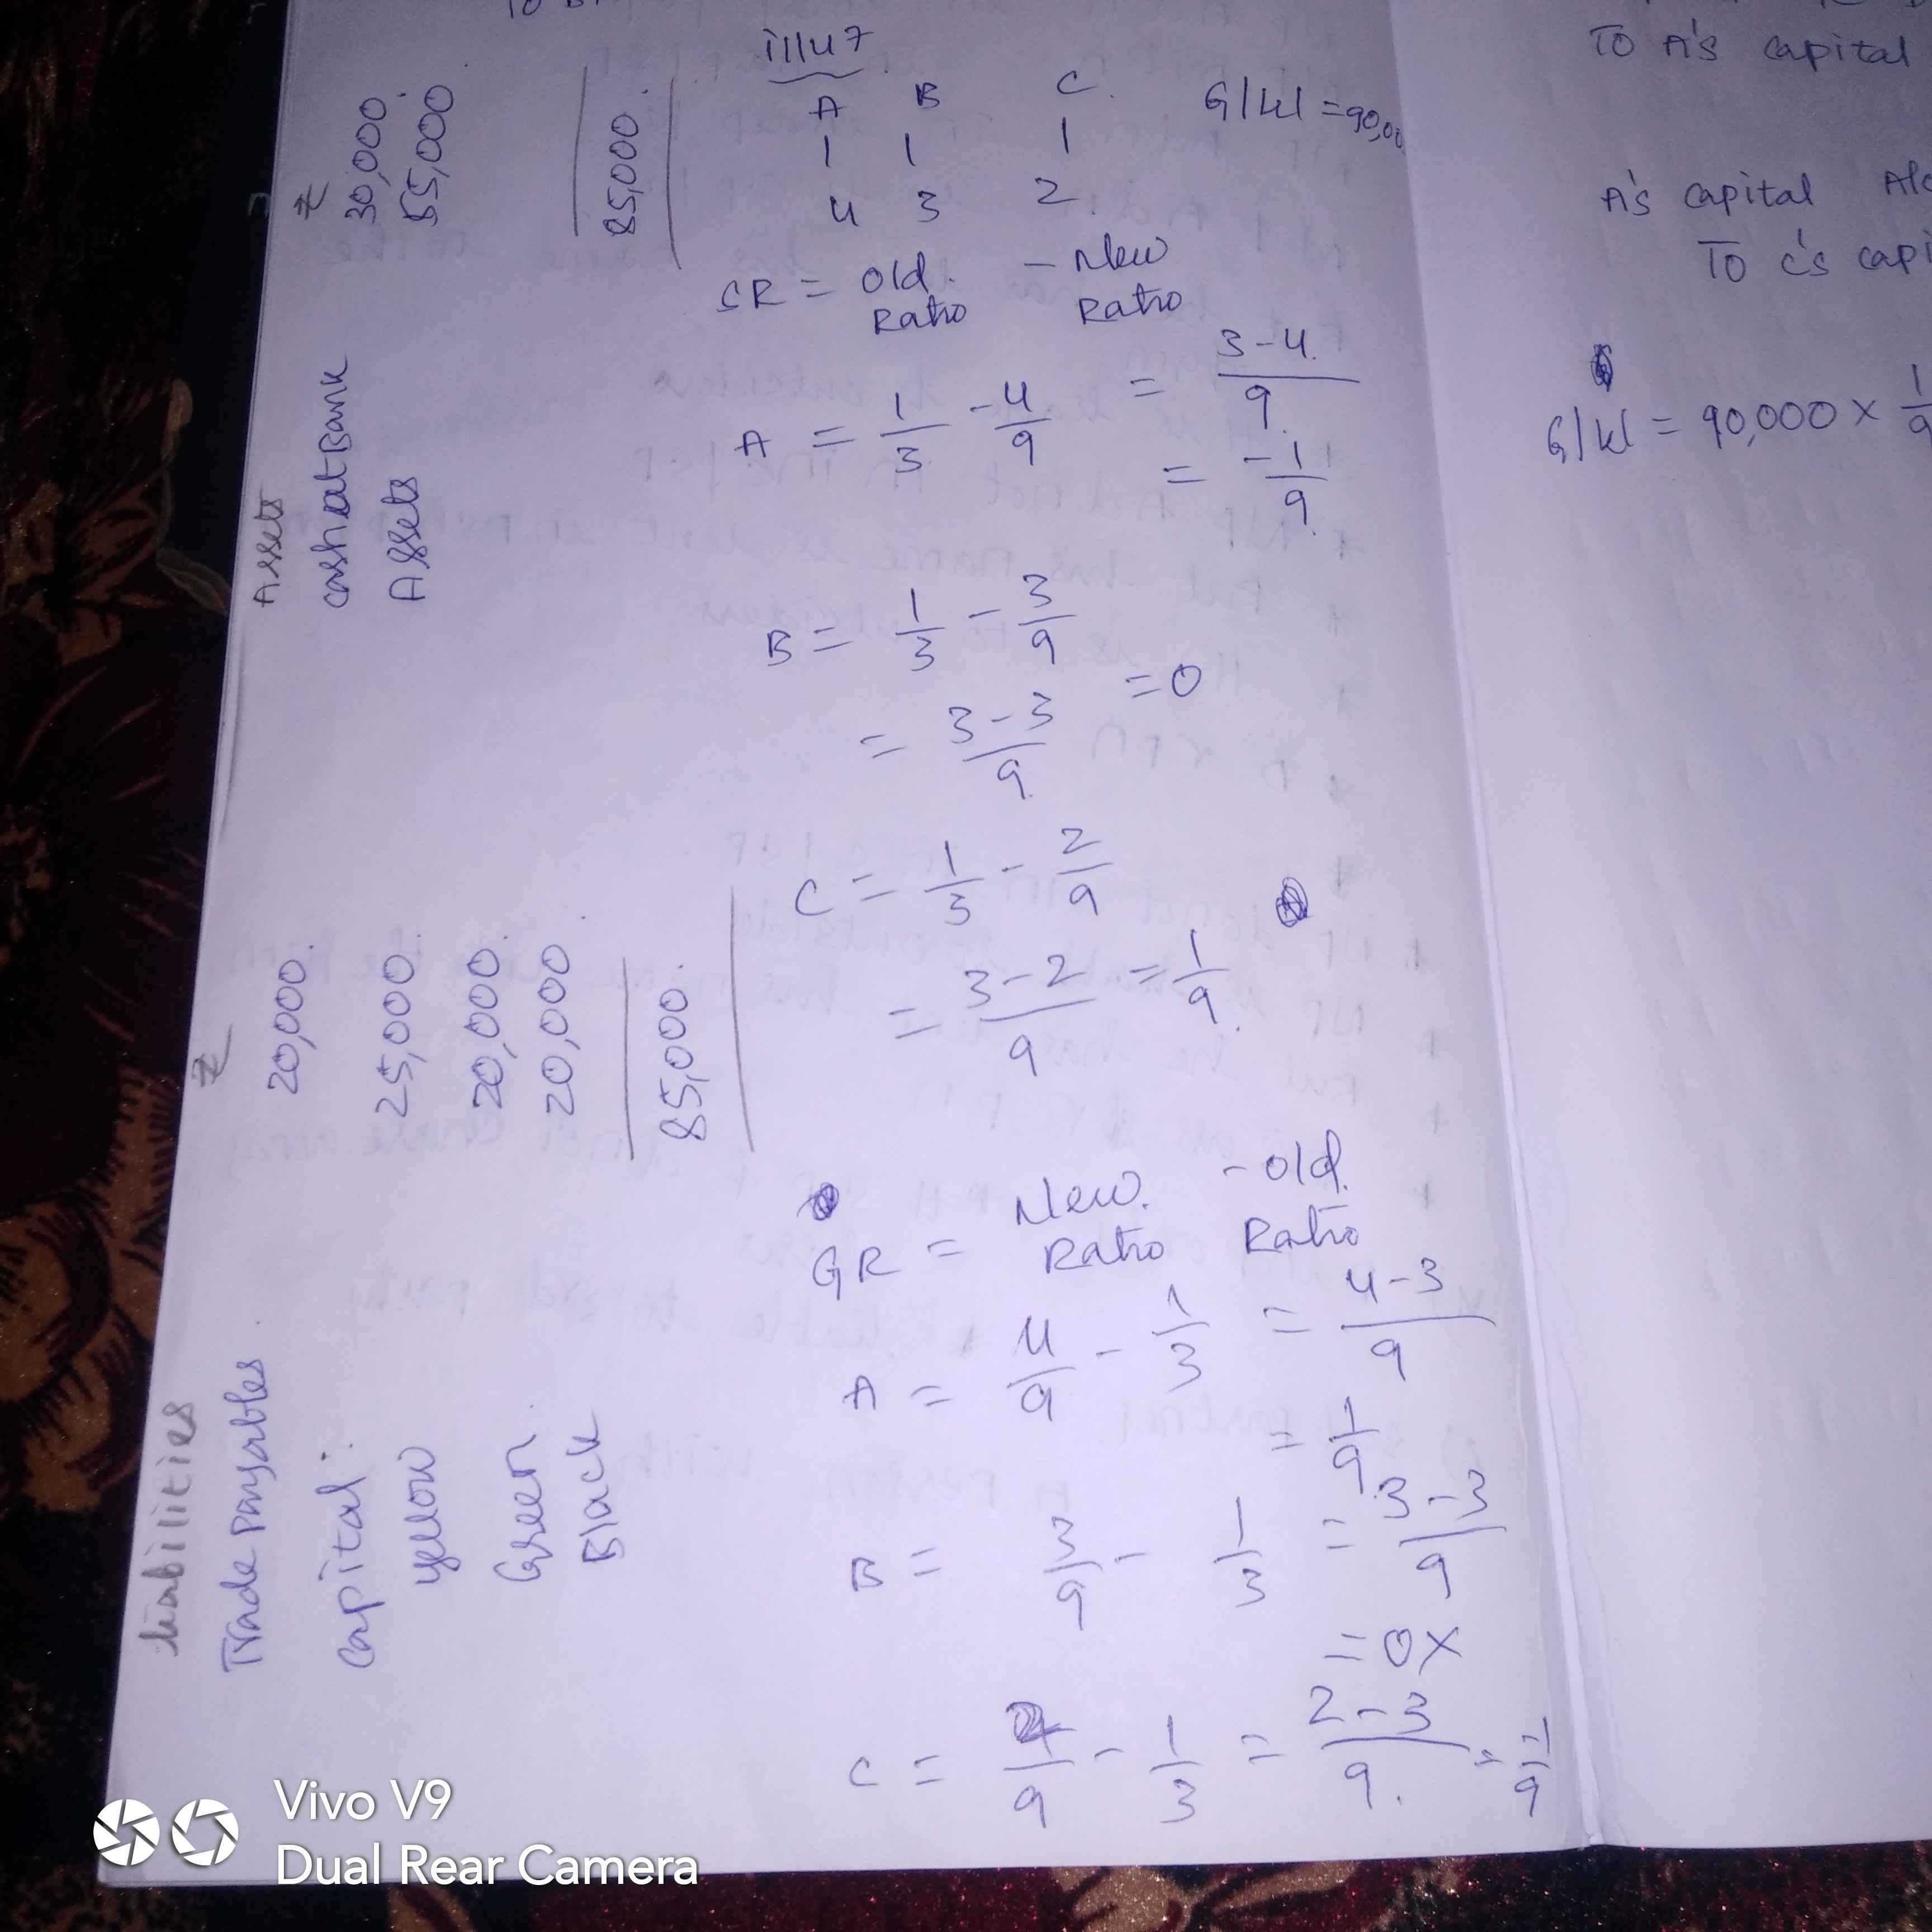 Liabilities ₹ Assets ₹
Trade Payables 20,000. cash at Bank 30,000.
Capital: Assets 55,000
yellow 25,000.
Green 20,000.
Black 20,000
85,000. 85,000.
illu 7
A B C. G/W = 90,00
1 1 1
4 3 2
SR = Old Ratio - New Ratio
A = 1/3 - 4/9 = 3-4/9
= -1/9
B = 1/3 - 3/9
= 3-3/9 = 0
C = 1/3 - 2/9
= 3-2/9 = 1/9
GR = New Ratio - Old Ratio
A = 4/9 - 1/3 = 4-3/9
= 1/9
B = 3/9 - 1/3 = 3-3/9
= 0 X
C = 2/9 - 1/3 = 2-3/9 = -1/9
To A's capital
A's capital
To C's capi
G/W = 90,000 × 1/9
Vivo V9
Dual Rear Camera